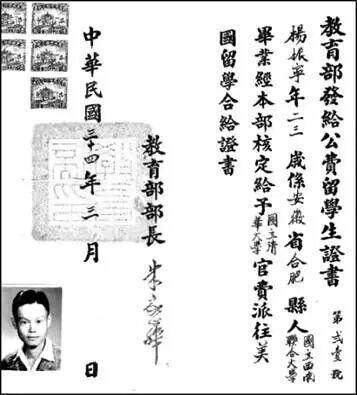 教育部發給公費留學生證書
第貳壹號
楊振寧年二三歲係安徽省合肥縣人
國立西南聯合大學
畢業經本部核定給予國立清華大學官費派往美
國留學合給證書
教育部部長 朱家驊
中華民國三十四年三月 日